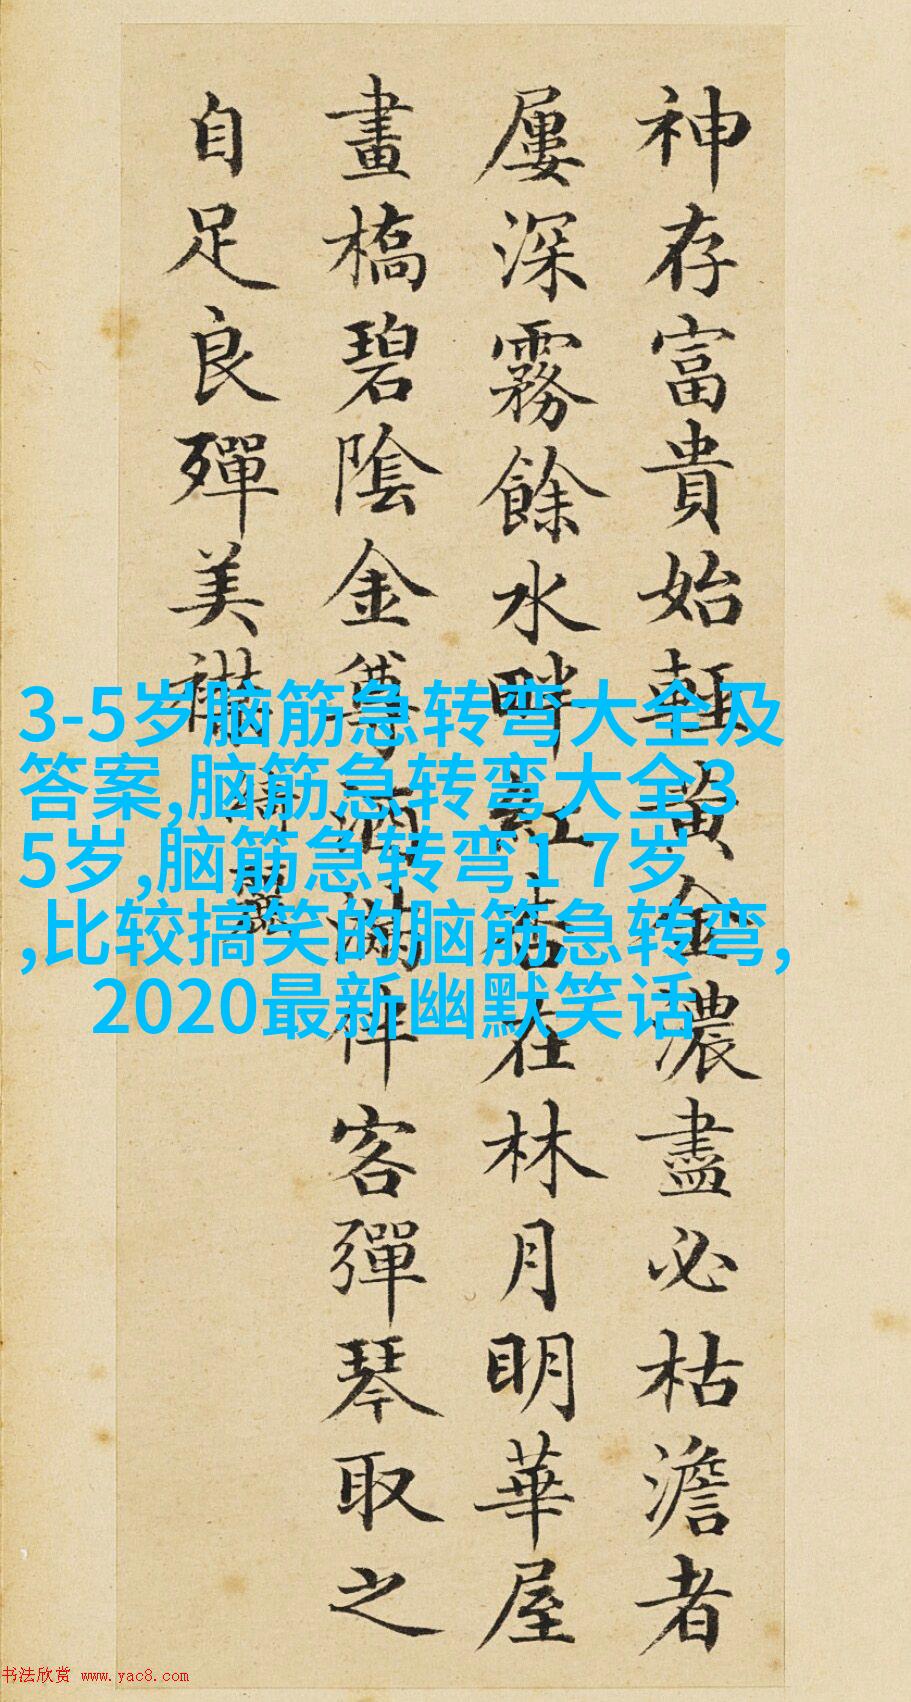 神存富貴始輕黃金濃盡必枯澹者
屢深霧餘水畔紅杏在林月明華屋
畫橋碧陰金尊酒滿伴客彈琴取之
自足良殫美襟
綺麗
3-5岁脑筋急转弯大全及
答案,脑筋急转弯大全3
5岁,脑筋急转弯1 7岁
,比较搞笑的脑筋急转弯,
2020最新幽默笑话
书法欣赏 www.yac8.com